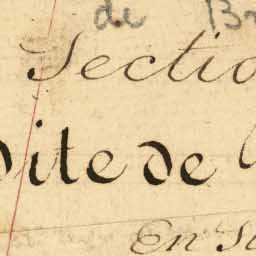 de Br
Sectio
dite de
En